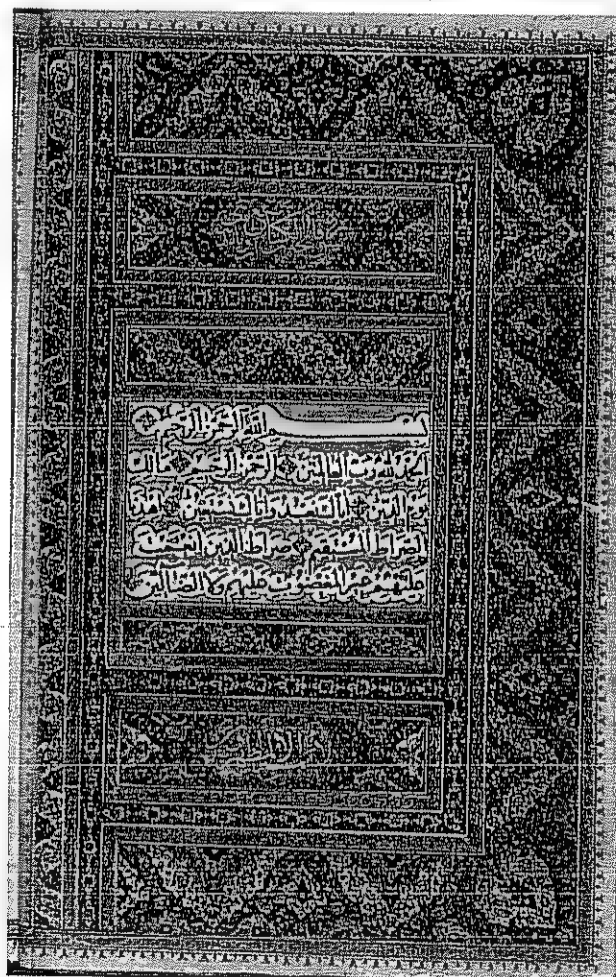 بسم الله الرحمن الرحيم
الحمد لله رب العالمين الرحمن الرحيم مالك
يوم الدين إياك نعبد وإياك نستعين اهدنا
الصراط المستقيم صراط الذين أنعمت
عليهم غير المغضوب عليهم ولا الضالين